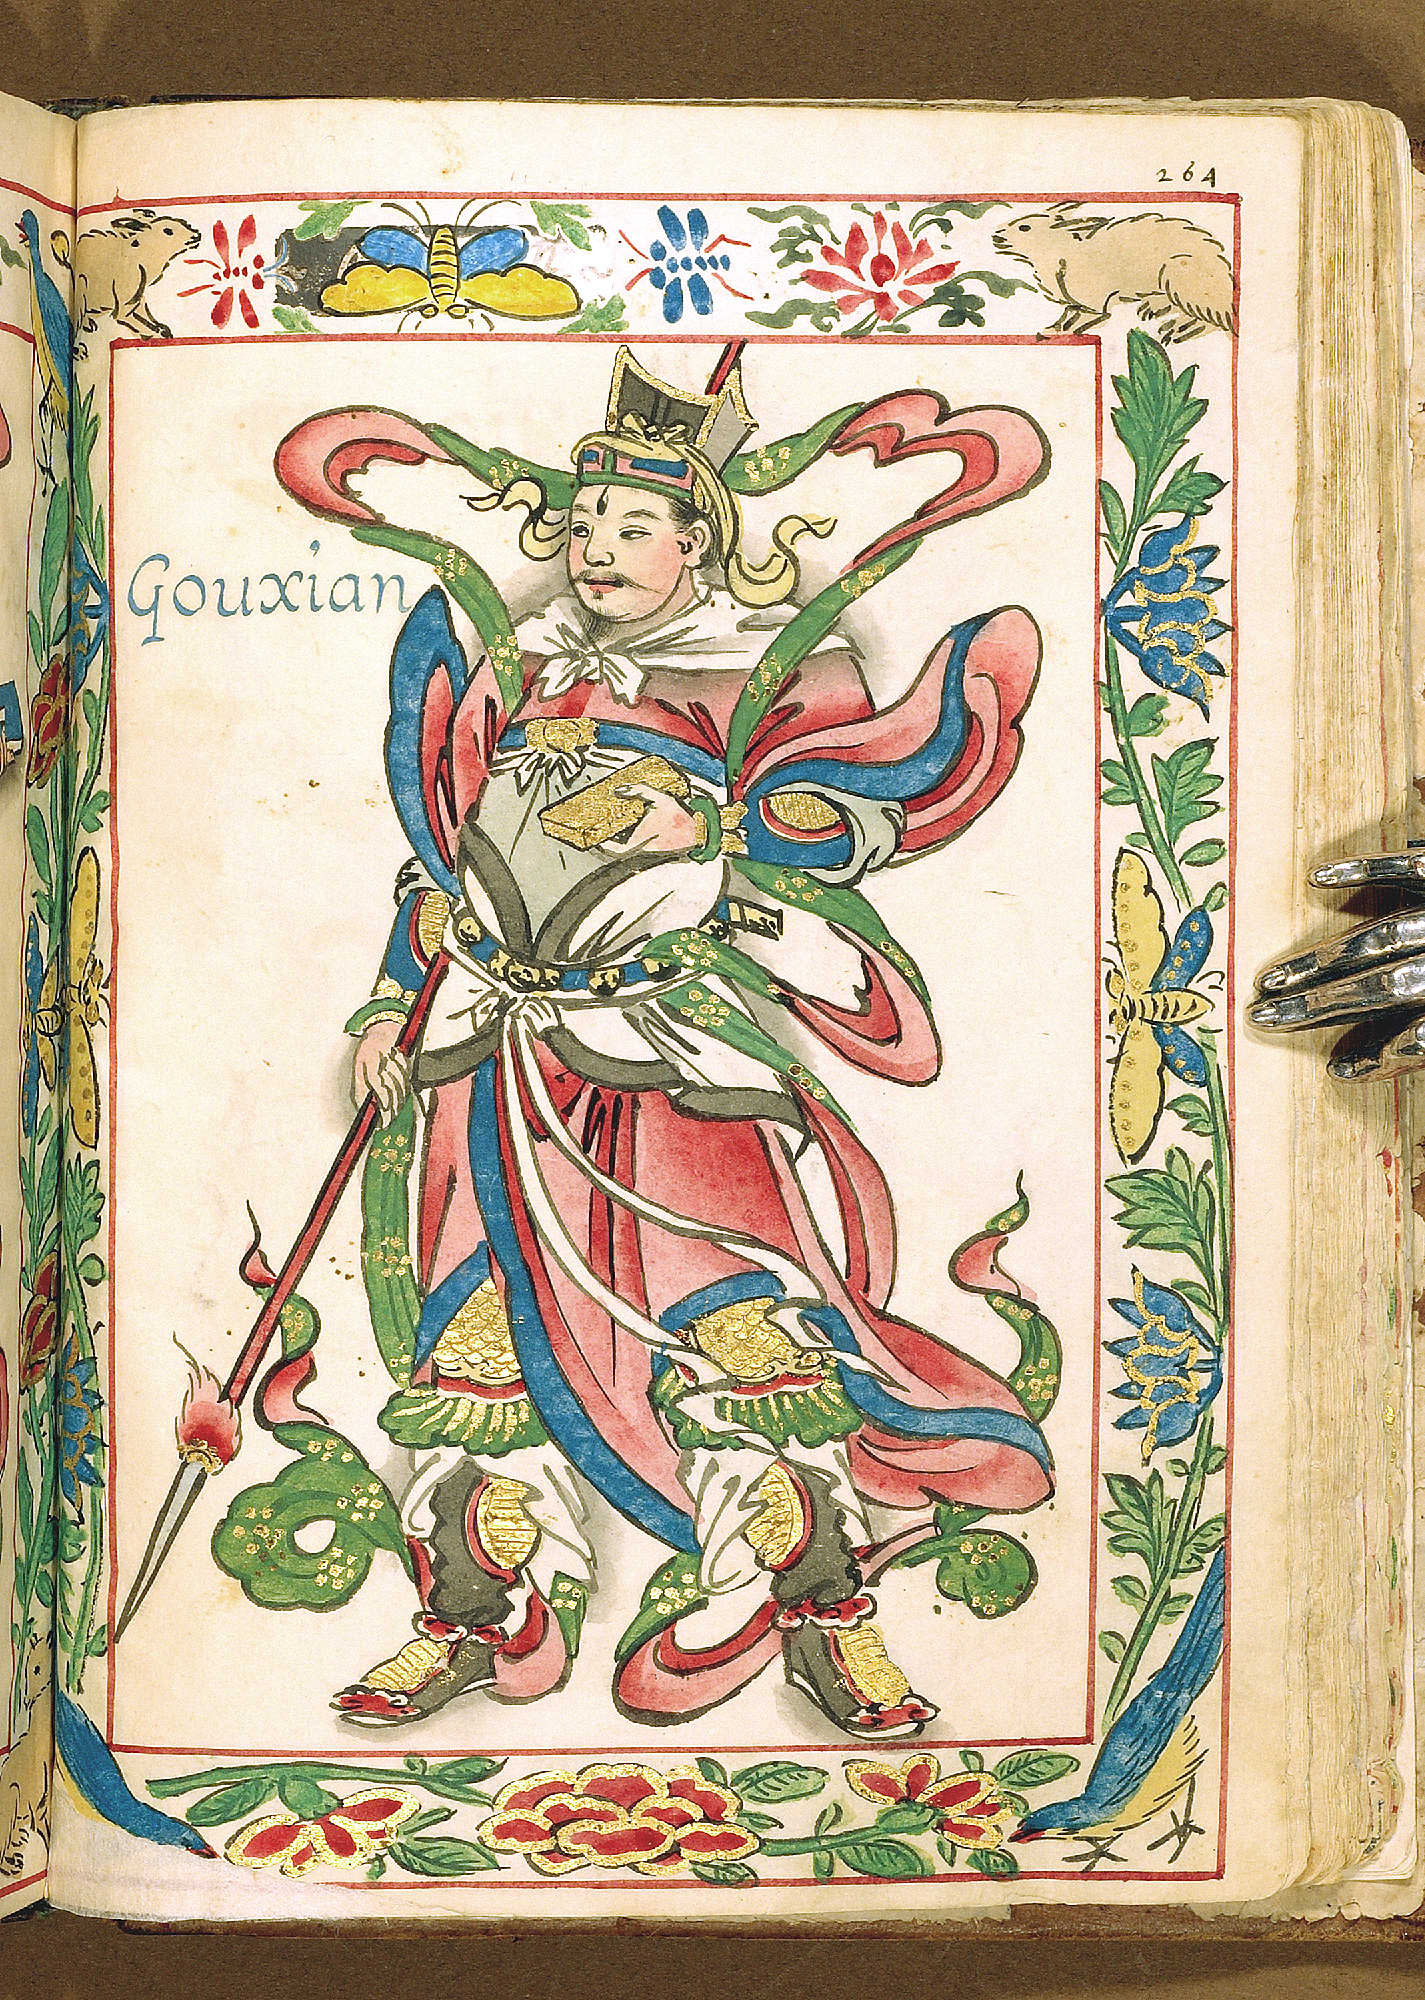 264
Gouxian